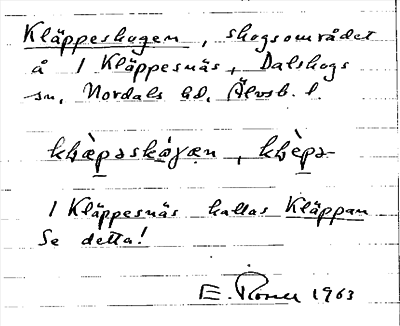 Kläppeskogen, skogsområdet
å 1 Kläppesnäs, Dalskogs
sn, Nordals hd, Älvsb. l.
klæ̀pəskóγæn, klæ̀pə-
1 Kläppesnäs kallas Kläppan
Se detta!
E. 1963